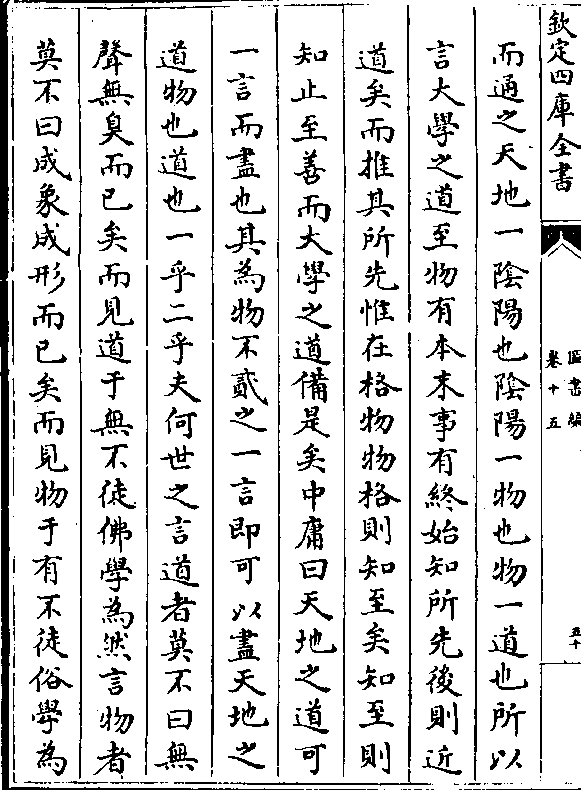 欽定四庫全書
圖書編
卷十五
五十
而通之天地一陰陽也陰陽一物也物一道也所以
言大學之道至物有本末事有終始知所先後則近
道矣而推其所先惟在格物物格則知至矣知至則
知止至善而大學之道備是矣中庸曰天地之道可
一言而盡也其為物不貳之一言即可以盡天地之
道物也道也一乎二乎夫何世之言道者莫不曰無
聲無臭而已矣而見道于無不徒佛學為然言物者
莫不曰成象成形而已矣而見物于有不徒俗學為